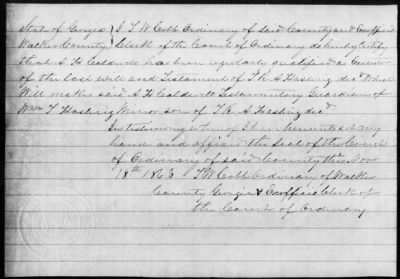 State of Georgia } I T W Cobb Ordinary of said County and Exofficio
Walker County } Clerk of the Court of Ordinary do hereby Certify
that A H Caldwell has been regularly qualified as Executor
of the last will and Testament of T K A Hasling decd which
Will makes said A H Caldwell Testamentary Guardian of
Wm T Hasling Minor son of T K A Hasling decd
In testimony whereof I have hereunto set my
hand and affixed the Seal of the Court
of Ordinary of said County this Nov
18th 1866 T W Cobb Ordinary of Walker
County Georgia & Exofficio Clerk of
the Court of Ordinary